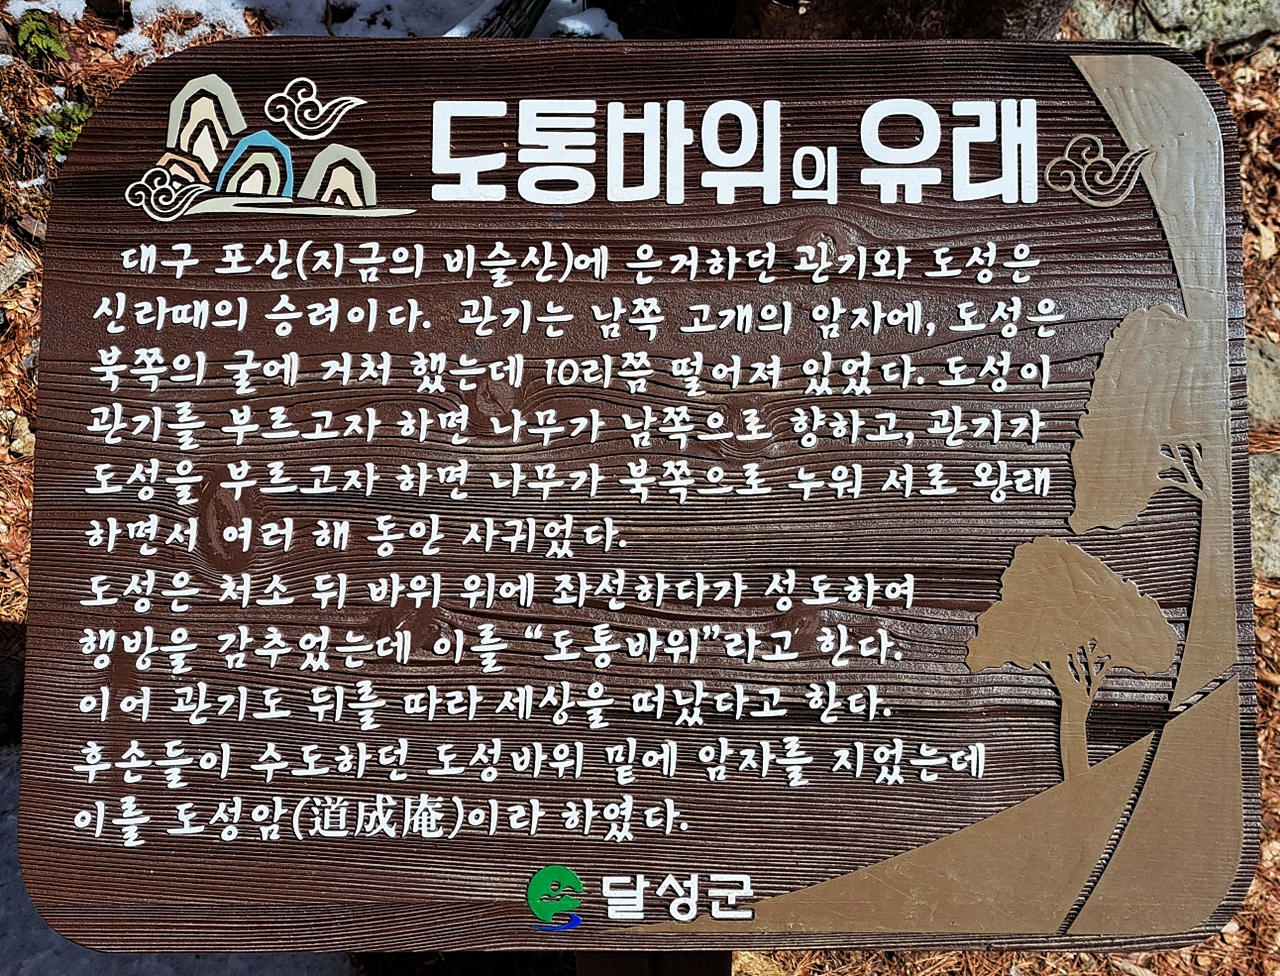 도통바위의 유래
대구 포산(지금의 비슬산)에 은거하던 관기와 도성은
신라때의 승려이다. 관기는 남쪽 고개의 암자에, 도성은
북쪽의 굴에 거처 했는데 10리쯤 떨어져 있었다. 도성이
관기를 부르고자 하면 나무가 남쪽으로 향하고, 관기가
도성을 부르고자 하면 나무가 북쪽으로 누워 서로 왕래
하면서 여러 해 동안 사귀었다.
도성은 처소 뒤 바위 위에 좌선하다가 성도하여
행방을 감추었는데 이를 “도통바위”라고 한다.
이어 관기도 뒤를 따라 세상을 떠났다고 한다.
후손들이 수도하던 도성바위 밑에 암자를 지었는데
이를 도성암(道成庵)이라 하였다.
달성군